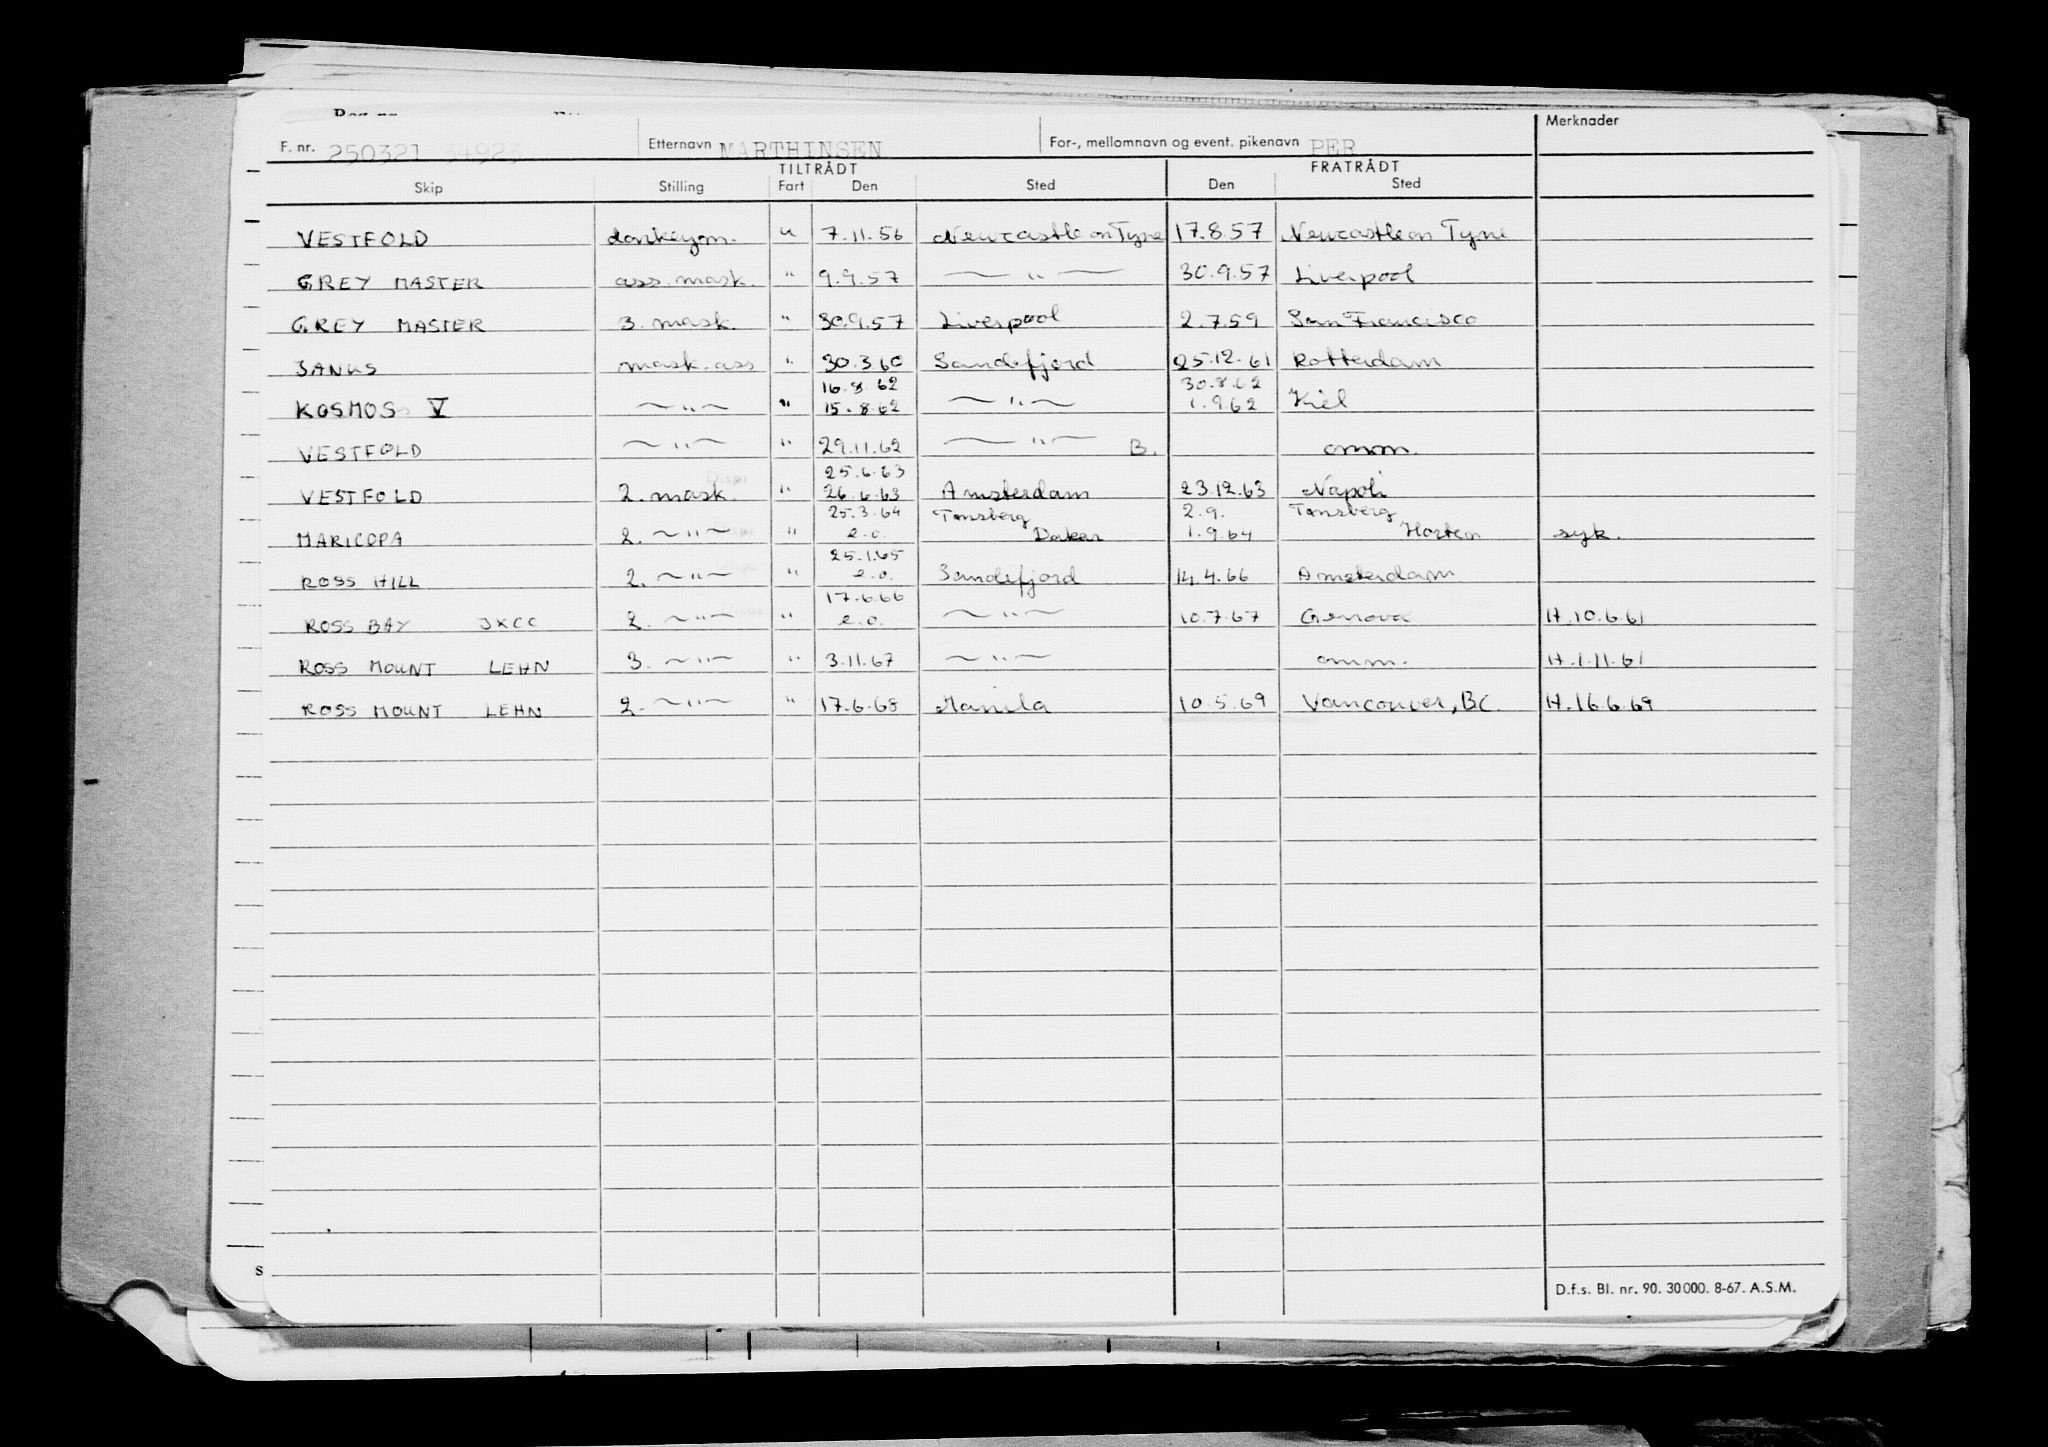 F. nr. 250321 34923 Etternavn MARTHINSEN For-, mellomnavn og event. pikenavn PER Merknader
TILTRÅDT FRATRÅDT
Skip Stilling Fart Den Sted Den Sted
VESTFOLD donkeym. u 7.11.56 Newcastle on Tyne 17.8.57 Newcastle on Tyne
GREY MASTER ass. mask. " 9.9.57 — " — 30.9.57 Liverpool
GREY MASTER 3. mask. " 30.9.57 Liverpool 2.7.59 San Francisco
JANUS mask. ass " 30.3.60 Sandefjord 25.12.61 Rotterdam
16.8.62 30.8.62
KOSMOS V — " — " 15.8.62 — " — 1.9.62 Kiel
VESTFOLD — " — " 29.11.62 — " — B. omm.
25.6.63
VESTFOLD 2. mask. " 26.6.63 Amsterdam 23.12.63 Napoli
25.3.64 Tønsberg 2.9. Tønsberg
MARICOPA 2. — " — " e.o. Dakar 1.9.64 Horten syk.
25.1.65
ROSS HILL 2. — " — " e.o. Sandefjord 14.4.66 Amsterdam
17.6.66
ROSS BAY JXCC 2. — " — " e.o. — " — 10.7.67 Genova H.10.6.61
ROSS MOUNT LEHN 3. — " — " 3.11.67 — " — omm. H.1.11.61
ROSS MOUNT LEHN 2. — " — " 17.6.68 Manila 10.5.69 Vancouver, BC. H.16.6.69
D.f.s. Bl. nr. 90. 30000. 8-67. A.S.M.